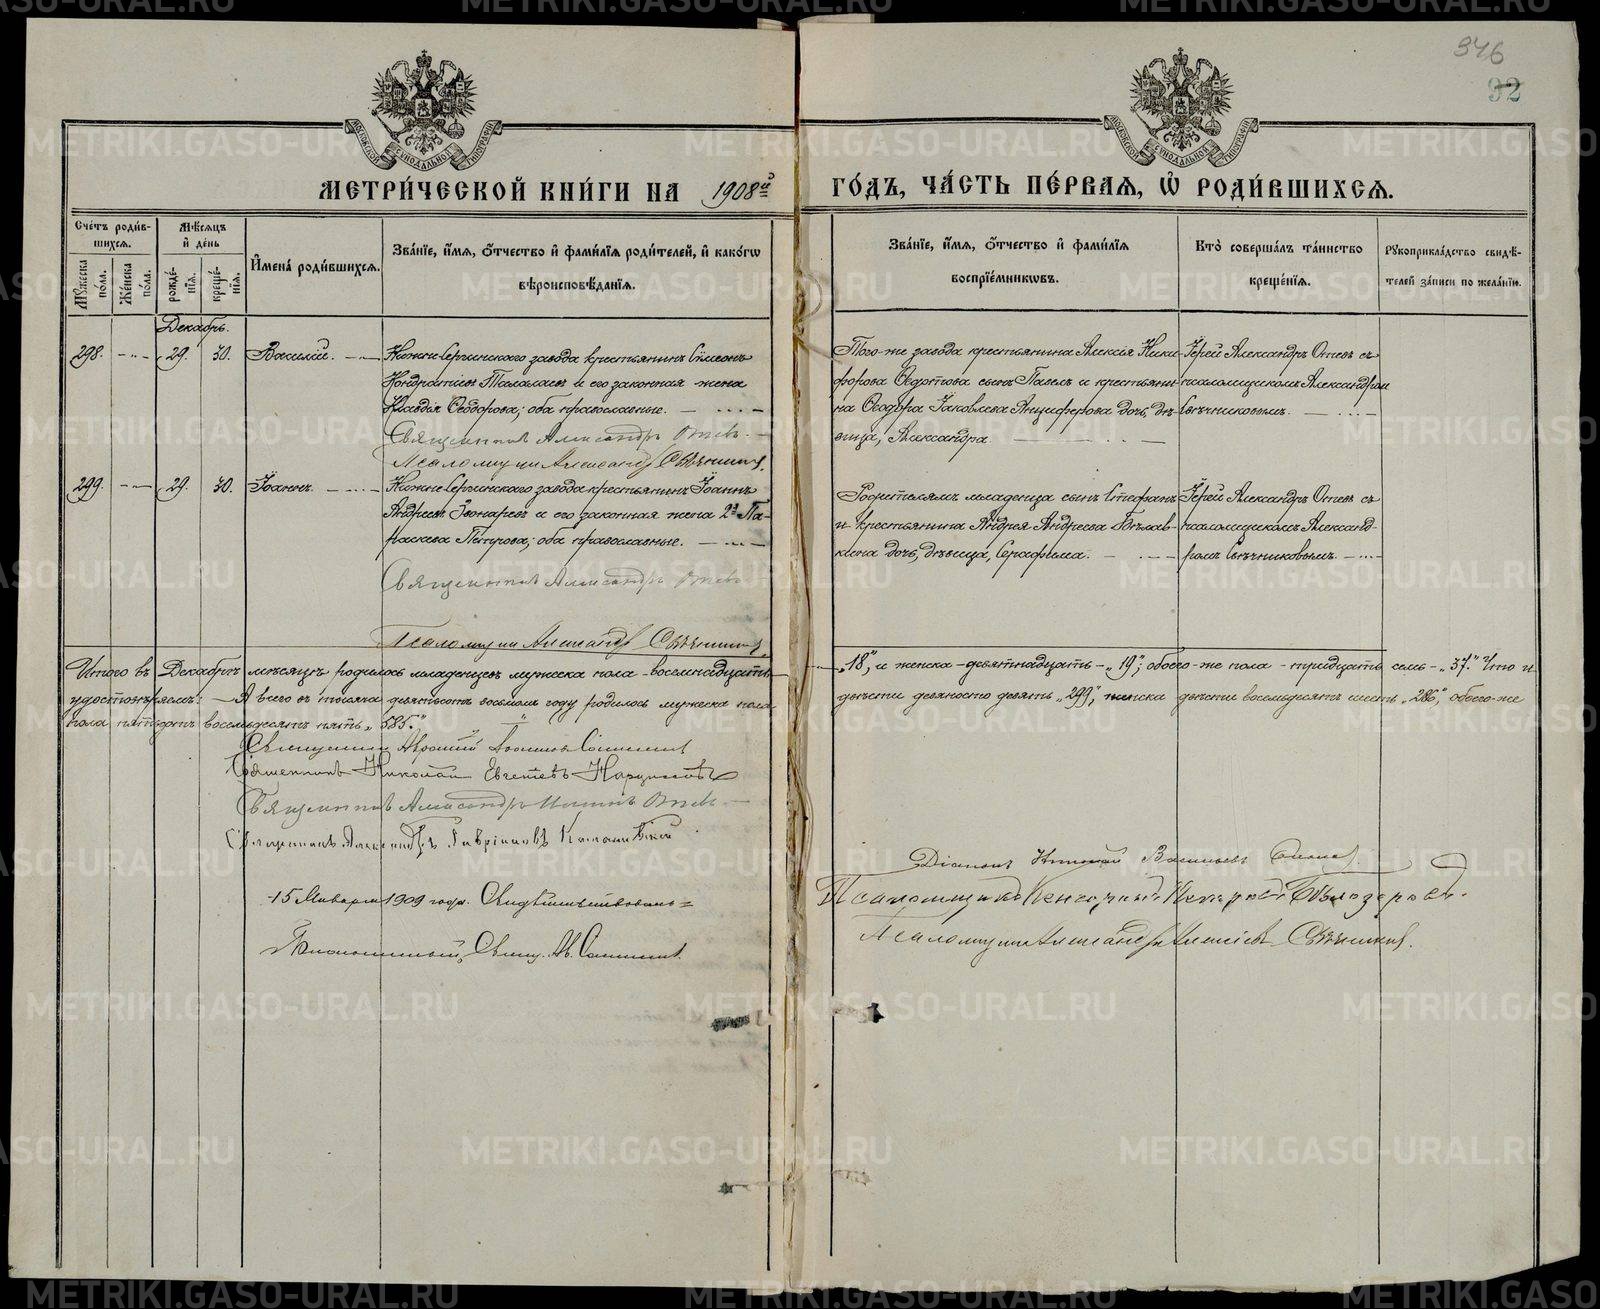 346
92
МОСКОВСКОЙ СѴНОДАЛЬНОЙ ТИПОГРАФІИ
МОСКОВСКОЙ СѴНОДАЛЬНОЙ ТИПОГРАФІИ
МЕТРИ́ЧЕСКОЙ КНИ́ГИ НА 1908й ГО́ДЪ, ЧА́СТЬ ПЕ́РВАЯ, Ѡ РОДИ́ВШИХСЯ.
Сче́тъ роди́в-
шихся.
Мꙋ́жеска по́ла.
Же́нска по́ла.
Мѣ́сяцъ
и҆ де́нь
рожде́-
нїя.
креще́-
нїя.
И҆мена̀ роди́вшихся.
Зва́нїе, и҆́мя, ѻ҆́тчество и҆ фами́лїя роди́телей, и҆ како́гѡ
вѣроисповѣ́данїя.
Зва́нїе, и҆́мя, ѻ҆́тчество и҆ фами́лїя
воспрїе́мникѡвъ.
Кто̀ соверша́лъ та́инство
креще́нїя.
Рꙋкоприкла́дство свидѣ́-
телей за́писи по жела́нїю.
Декабрь.
298. 29. 30. Василій. Нижне-Сергинскаго завода крестьянинъ Симеонъ
Кондратіевъ Талалаевъ и его законная жена
Клавдія Ѳеодорова; оба православные.
Священникъ Александръ Отевъ.
Псаломщикъ Александръ Свѣчниковъ.
Того-же завода крестьянина Алексія Ники-
форова Ѳедотова сынъ Павелъ и крестьяни-
на Ѳеодора Іаковлева Анциферова дочь, дѣ-
вица, Александра
Іерей Александръ Отевъ съ
псаломщикомъ Александромъ
Свѣчниковымъ.
299. 29. 30. Іоаннъ. Нижне-Сергинскаго завода крестьянинъ Іоаннъ
Андреевъ и его законная жена 2я Па-
раскева Петрова; оба православные.
Священникъ Александръ Отевъ
Псаломщикъ Александръ Свѣчниковъ.
Родителямъ младенца сынъ Стефанъ
и крестьянина Андрея Андреева
дочь, дѣвица, Серафима.
Іерей Александръ Отевъ съ
псаломщикомъ Александ-
ромъ Свѣчниковымъ.
Итого въ Декабрѣ мѣсяцѣ родилось младенцевъ мужеска пола - восемнадцать - „18", и женска - девятнадцать - „19"; обоего-же пола - тридцать семь - „37." Что и
удостовѣряемъ: А всего въ тысяча девятьсотъ восьмомъ году родилось мужеска пола двѣсти девяносто девять „299", женска двѣсти восемьдесятъ шесть „286", обоего-же
пола пятьсотъ восемьдесятъ пять „585."
Священникъ
Священникъ Николай
Священникъ Александръ Отевъ
Священникъ Александръ Гавріиловъ
Діаконъ Николай Васильевъ
Псаломщикъ Бѣлозеровъ.
Псаломщикъ Александръ Алексіевъ Свѣчниковъ.
15 Января 1909 года. Свидѣтельствовалъ
Благочинный, Священ.
METRIKI.GASO-URAL.RU